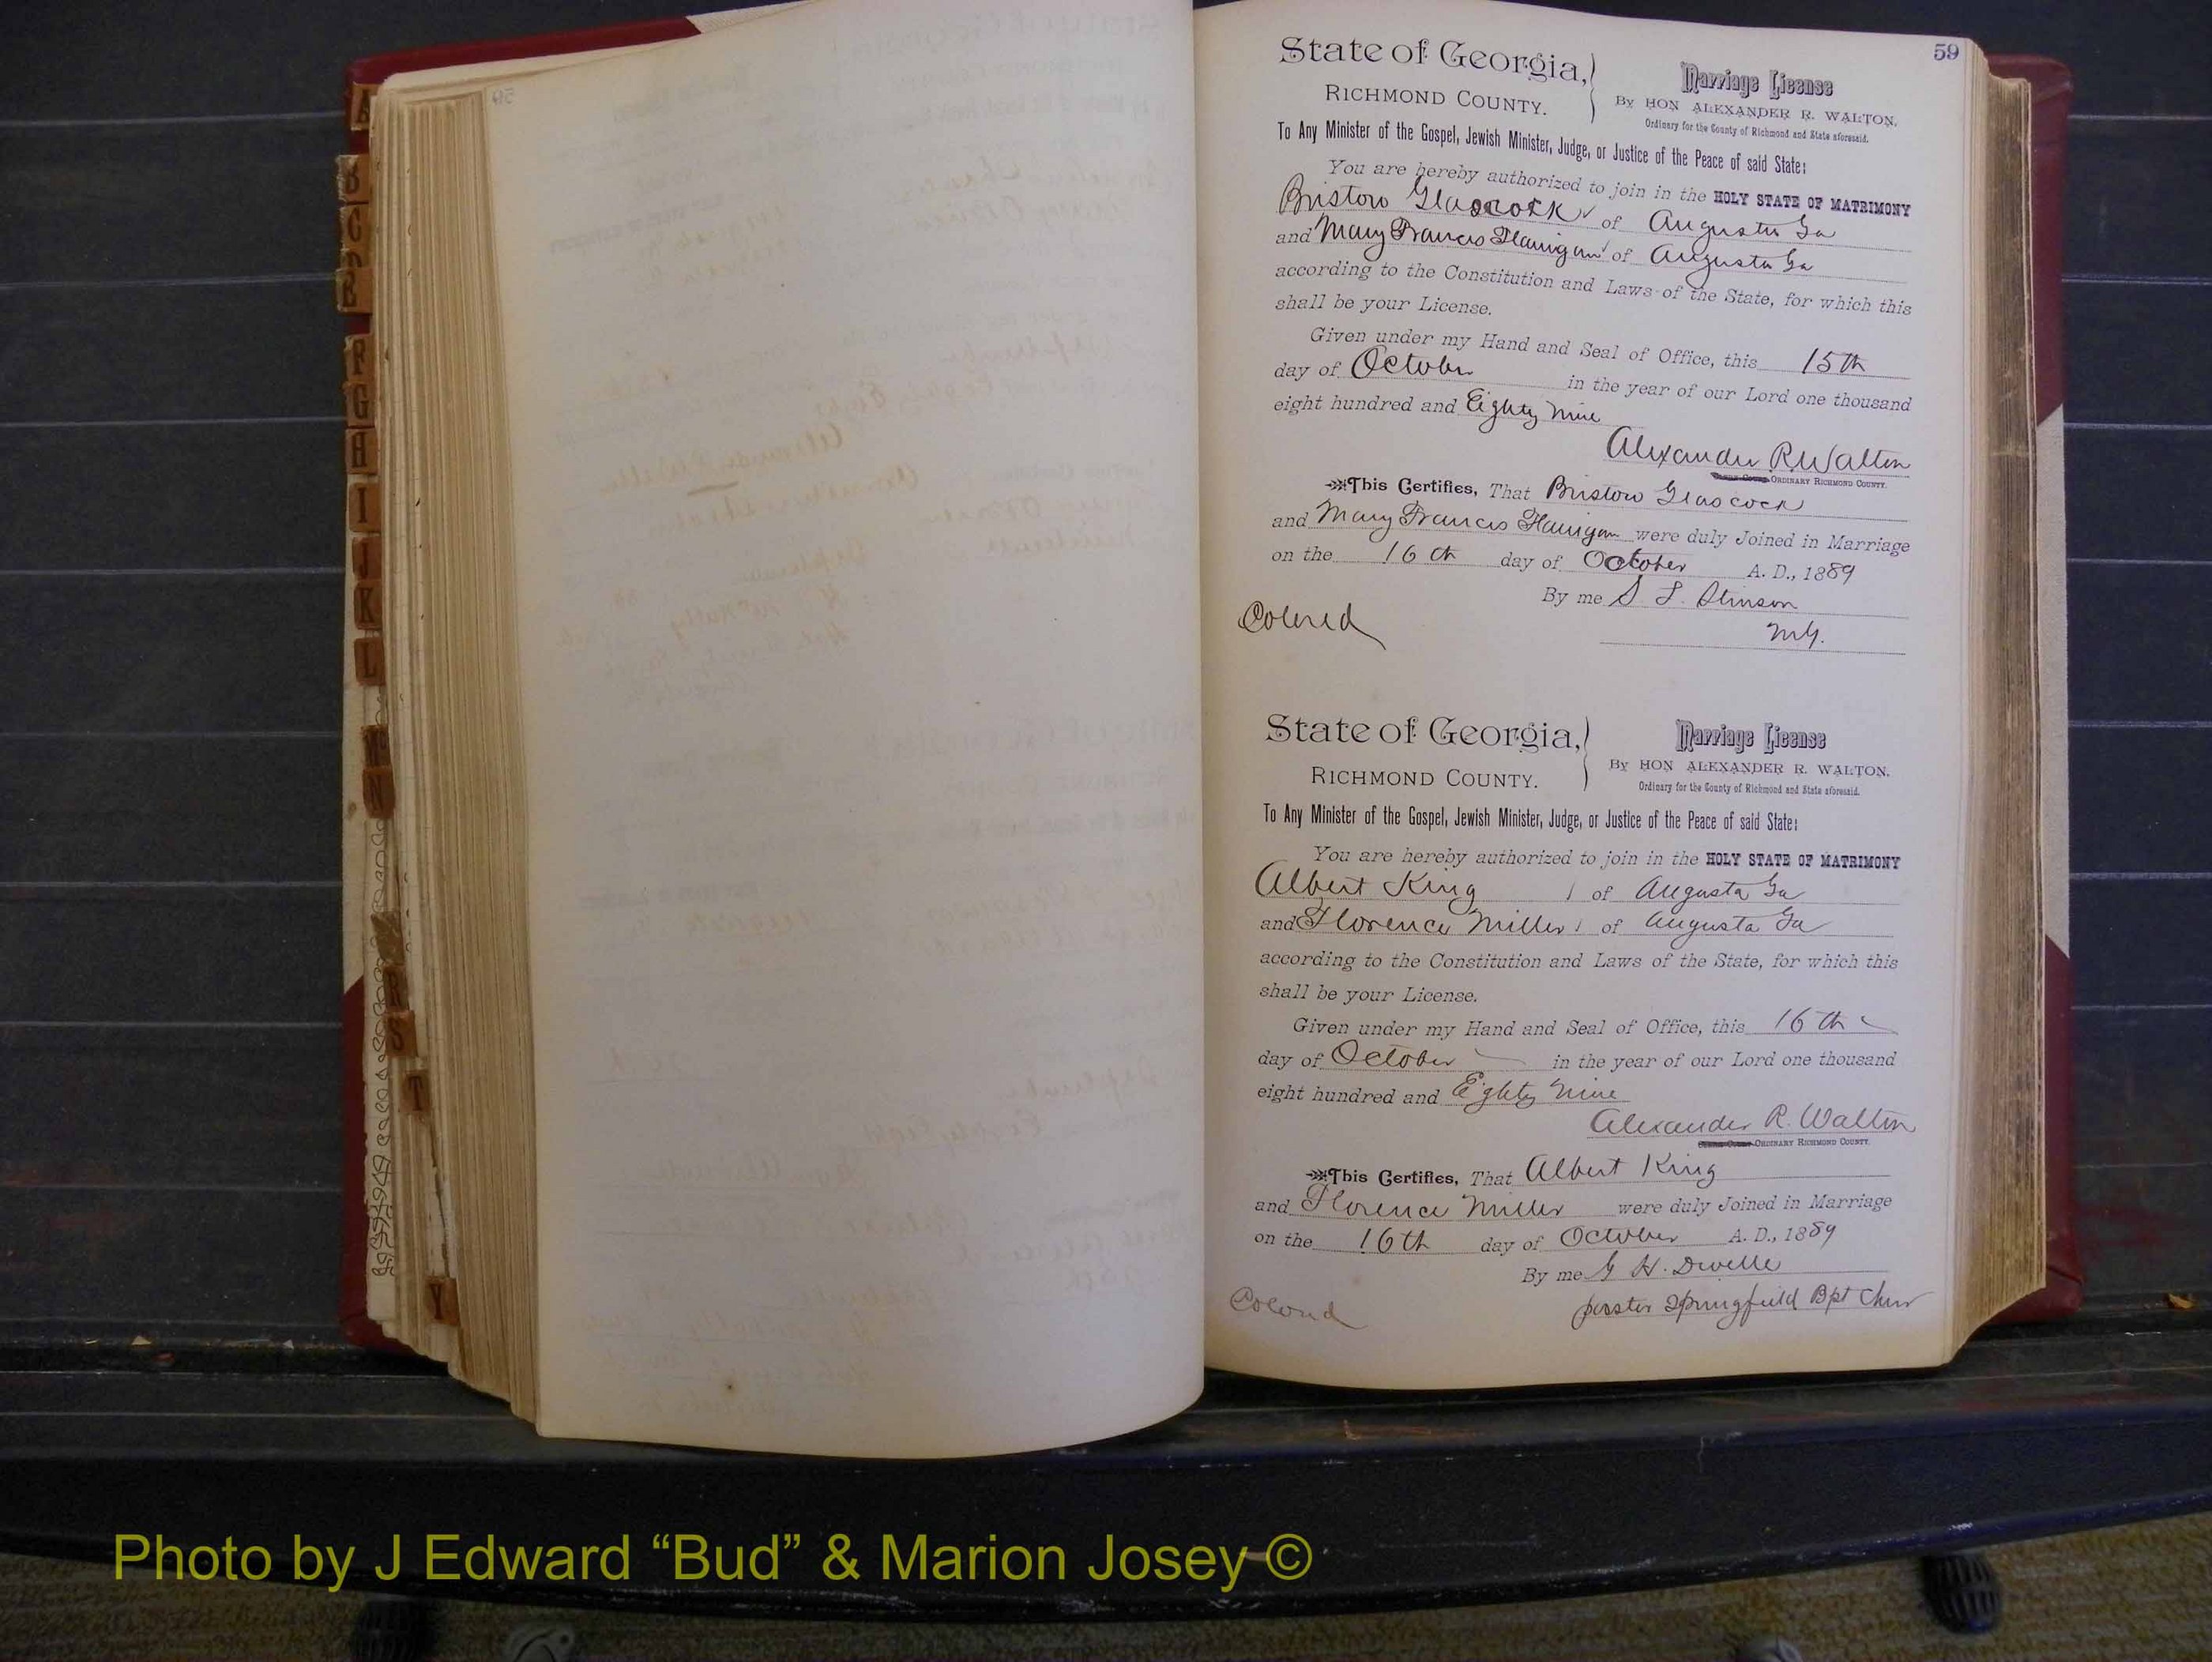 59
State of Georgia,
RICHMOND COUNTY.
Marriage License
By HON ALEXANDER R. WALTON,
Ordinary for the County of Richmond and State aforesaid.
To Any Minister of the Gospel, Jewish Minister, Judge, or Justice of the Peace of said State:
You are hereby authorized to join in the HOLY STATE OF MATRIMONY
Bristow Glascock of Augusta Ga
and Mary Francis Flanigan of Augusta Ga
according to the Constitution and Laws of the State, for which this
shall be your License.
Given under my Hand and Seal of Office, this 15th
day of October in the year of our Lord one thousand
eight hundred and Eighty Nine
Alexander R. Walton
ORDINARY RICHMOND COUNTY.
This Certifies, That Bristow Glascock
and Mary Francis Flanigan were duly Joined in Marriage
on the 16th day of October A. D., 1889
By me S. L. Stinson
M.G.
Colored
State of Georgia,
RICHMOND COUNTY.
Marriage License
By HON ALEXANDER R. WALTON,
Ordinary for the County of Richmond and State aforesaid.
To Any Minister of the Gospel, Jewish Minister, Judge, or Justice of the Peace of said State:
You are hereby authorized to join in the HOLY STATE OF MATRIMONY
Albert King of Augusta Ga
and Florence Miller of Augusta Ga
according to the Constitution and Laws of the State, for which this
shall be your License.
Given under my Hand and Seal of Office, this 16th
day of October in the year of our Lord one thousand
eight hundred and Eighty Nine
Alexander R. Walton
ORDINARY RICHMOND COUNTY.
This Certifies, That Albert King
and Florence Miller were duly Joined in Marriage
on the 16th day of October A. D., 1889
By me G H. Dwelle
paster Springfield Bpt Chur
Colord
B
C
F
G
H
I
J
K
L
N
S
T
Y
Photo by J Edward “Bud” & Marion Josey ©